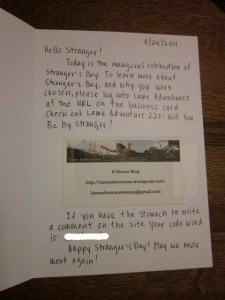 8/24/2011
Hello Stranger!
Today is the inaugural celebration of
Stranger's Day. To learn more about
Stranger's Day, and why you were
chosen, please log into Lame Adventures
at the URL on the business card.
Check out Lame Adventure 221: Will You
Be My Stranger?
Lame Adventures
A Humor Blog
http://lameadventures.wordpress.com/
lameadventureswoman@gmail.com
If you have the stomach to write
a comment on the site your code word
is:
Happy Stranger's Day! May we never
meet again!